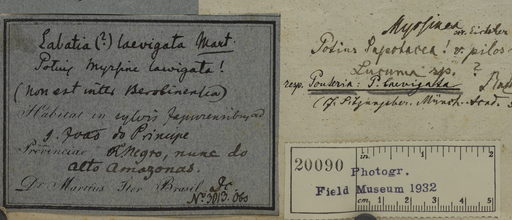 Labatia (?) laevigata Mart
Potius Myrsine laevigata!
(non est inter Berolinensia)
Habitat in sylvis Japurensibus ad
S. Joao do Principe
Provinciae R. Negro, nunc do
alto Amazonas.
Dr. Martius Iter Brasil.
Myrsinea
Potius Sapotacea! v. pilos
Lucuma sp. ?
resp. Pouteria: P. laevigata
(Cf. Sitzungsber. Münch. Acad.
20090
Photogr.
Field Museum 1932
in. 1 2
cm. 1 2 3 4 5